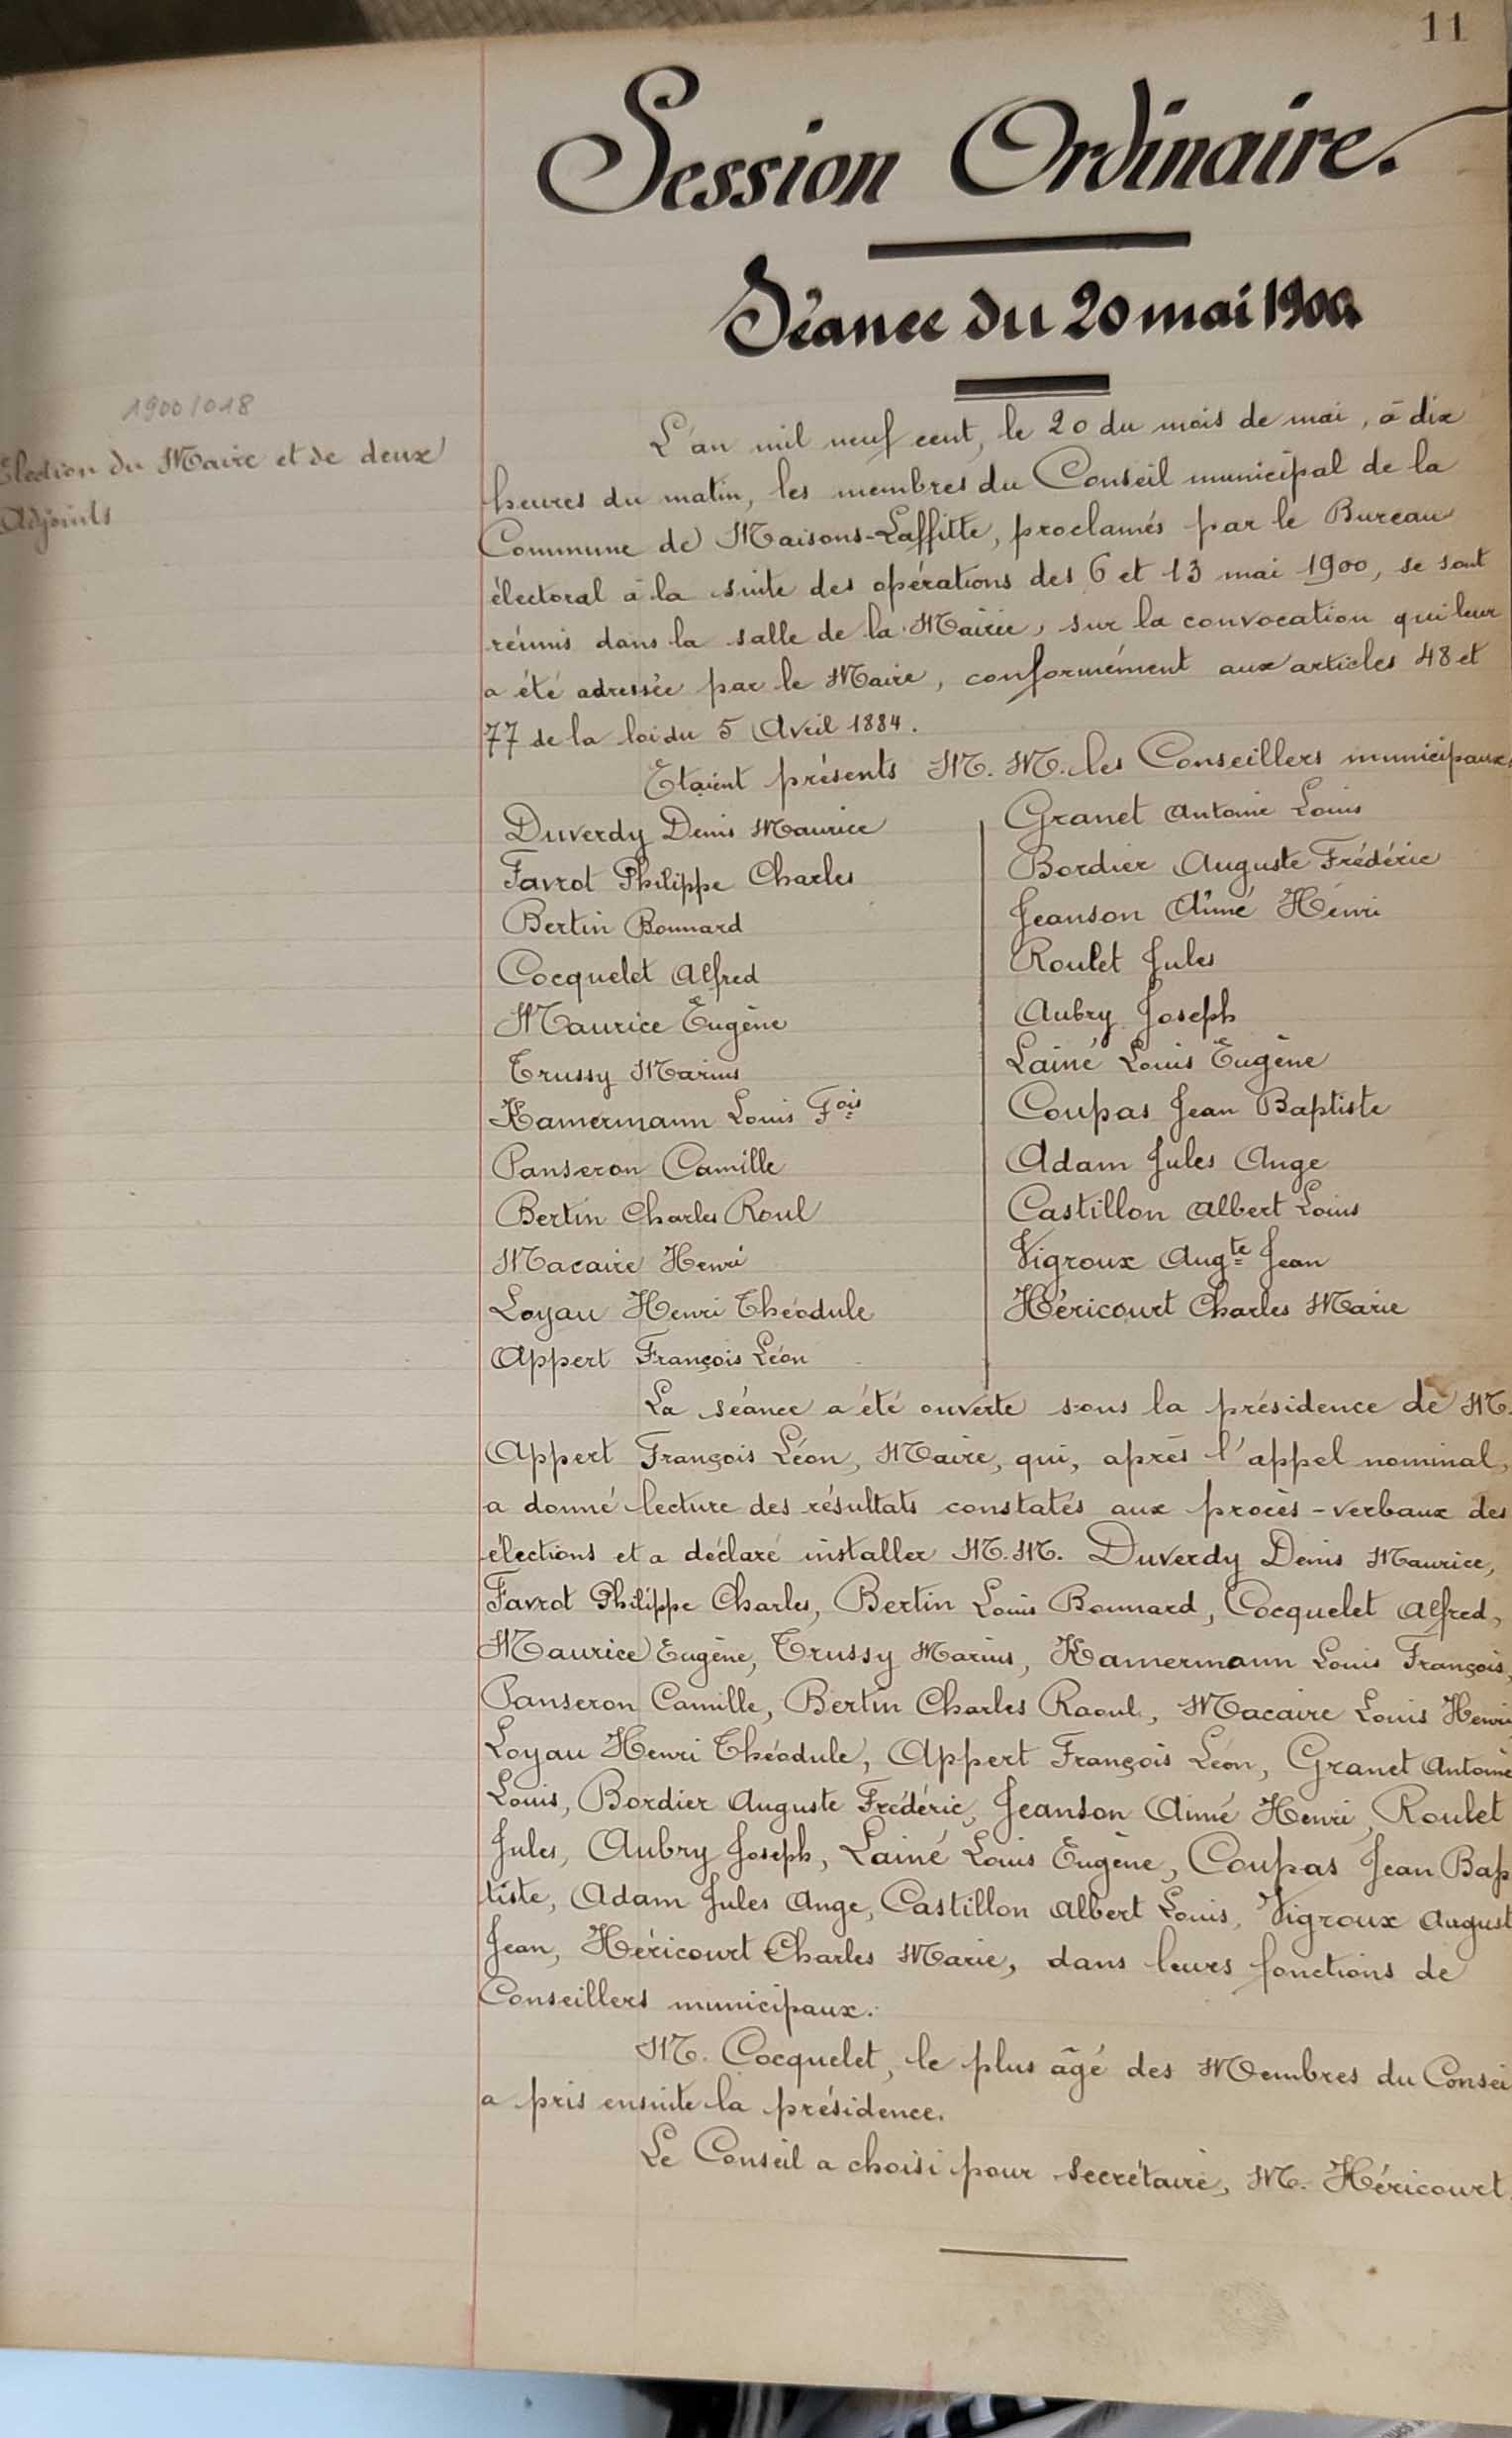 11
Session Ordinaire.
Séance du 20 mai 1900
1900/018
Election du Maire et de deux
Adjoints
L'an mil neuf cent, le 20 du mois de mai, à dix
heures du matin, les membres du Conseil municipal de la
Commune de Maisons-Laffitte, proclamés par le Bureau
électoral à la suite des opérations des 6 et 13 mai 1900, se sont
réunis dans la salle de la Mairie, sur la convocation qui leur
a été adressée par le Maire, conformément aux articles 48 et
77 de la loi du 5 Avril 1884.
Etaient présents M. M. les Conseillers municipaux:
Duverdy Denis Maurice
Favrot Philippe Charles
Bertin Bonnard
Cocquelet Alfred
Maurice Eugène
Trussy Marius
Kamermann Louis Fois
Panseron Camille
Bertin Charles Roul
Macaire Henri
Loyau Henri Théodule
Appert François Léon
Granet Antoine Louis
Bordier Auguste Frédéric
Jeanson Aimé Henri
Roulet Jules
Aubry Joseph
Lainé Louis Eugène
Coupas Jean Baptiste
Adam Jules Ange
Castillon Albert Louis
Vigroux Augte Jean
Héricourt Charles Marie
La séance a été ouverte sous la présidence de M.
Appert François Léon, Maire, qui, après l'appel nominal,
a donné lecture des résultats constatés aux procès-verbaux des
élections et a déclaré installer M. M. Duverdy Denis Maurice,
Favrot Philippe Charles, Bertin Louis Bonnard, Cocquelet Alfred,
Maurice Eugène, Trussy Marius, Kamermann Louis François,
Panseron Camille, Bertin Charles Raoul, Macaire Louis Henri
Loyau Henri Théodule, Appert François Léon, Granet Antoine
Louis, Bordier Auguste Frédéric, Jeanson Aimé Henri, Roulet
Jules, Aubry Joseph, Lainé Louis Eugène, Coupas Jean Bap
tiste, Adam Jules Ange, Castillon Albert Louis, Vigroux August
Jean, Héricourt Charles Marie, dans leurs fonctions de
Conseillers municipaux.
M. Cocquelet, le plus âgé des Membres du Consei
a pris ensuite la présidence.
Le Conseil a choisi pour secrétaire, M. Héricourt.